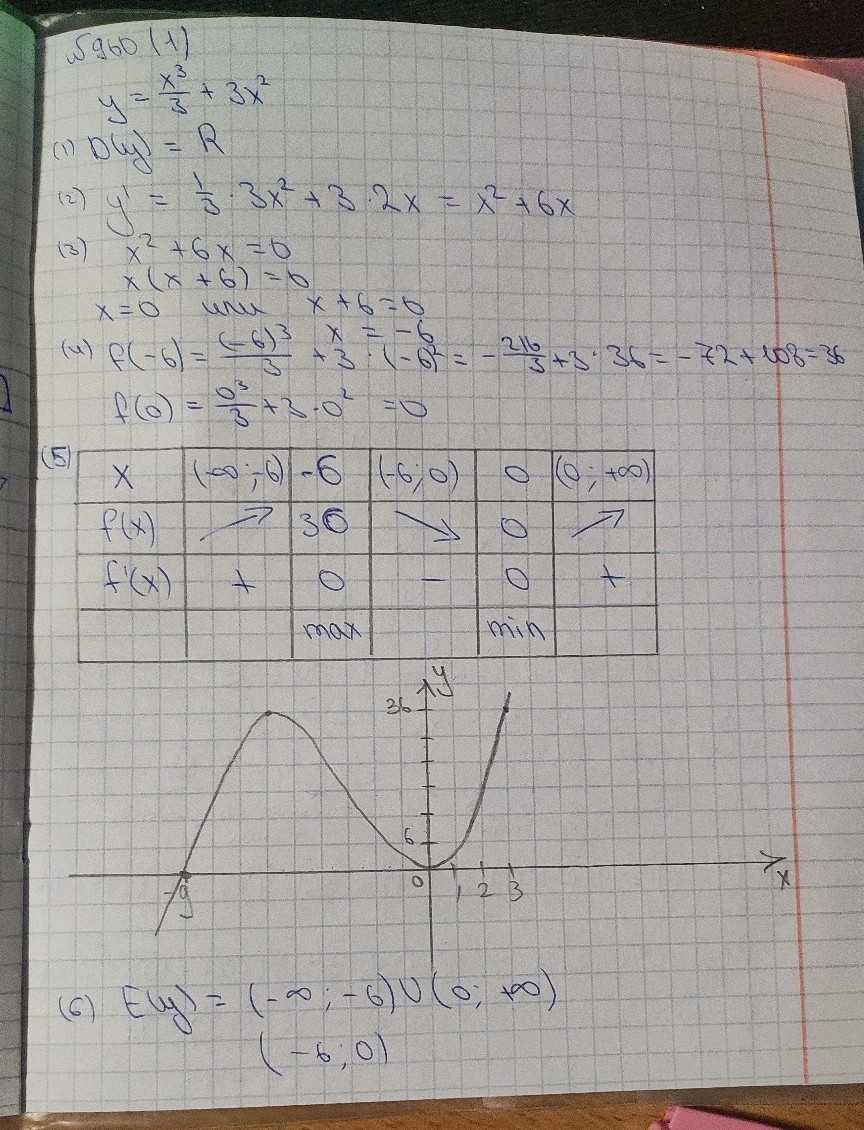 №960 (1)
y = x³/3 + 3x²
(1) D(y) = R
(2) y' = 1/3 · 3x² + 3 · 2x = x² + 6x
(3) x² + 6x = 0
x(x + 6) = 0
x = 0 или x + 6 = 0
x = -6
(4) f(-6) = (-6)³/3 + 3 · (-6)² = -216/3 + 3 · 36 = -72 + 108 = 36
f(0) = 0³/3 + 3 · 0² = 0
(5)
x (-∞; -6) -6 (-6; 0) 0 (0; +∞)
f(x) ↗ 36 ↘ 0 ↗
f'(x) + 0 − 0 +
max min
y
36
6
-9 0 1 2 3 x
(6) E(y) = (-∞; -6) U (0; +∞)
(-6; 0)